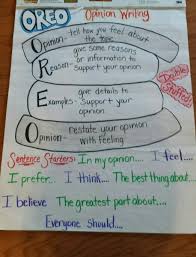 OREO Opinion Writing
Opinion - tell how you feel about
the topic
Reason - give some reasons
or information to
support your opinion
Double
Stuffed!
Examples - give details to
support your
opinion
Opinion - restate your opinion
with feeling
Sentence Starters: In my opinion.... I feel....
I prefer... I think.... The best thing about...
I believe The greatest part about....
Everyone should....